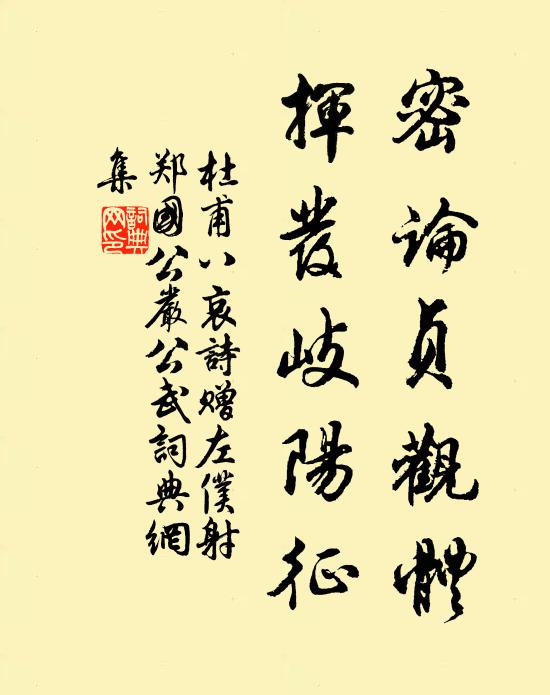 密論貞觀體
揮發岐陽征
杜甫八哀詩贈左僕射
郑國公嚴公武詞典網
集
詞典
网印